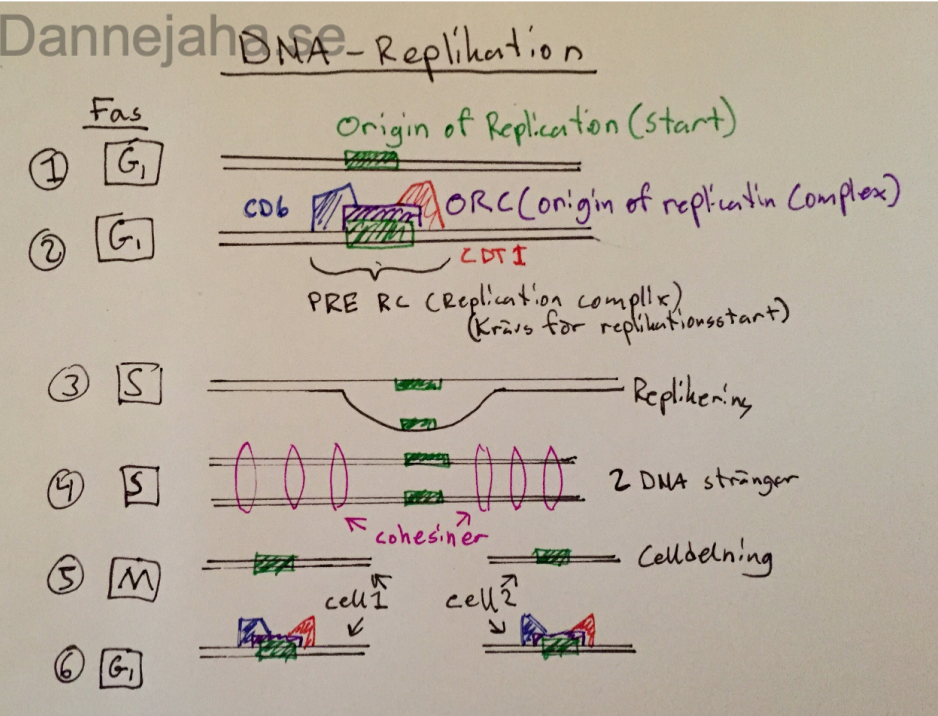 Dannejaha.se
DNA-Replikation
Fas
Origin of Replication (start)
1 G1
CD6 ORC (origin of replicatin Complex)
2 G1
CDT1
PRE RC (Replication complix)
(Krävs för replikationsstart)
3 S Replikering
4 S 2 DNA strängar
cohesiner
5 M Celldelning
cell 1 cell 2
6 G1